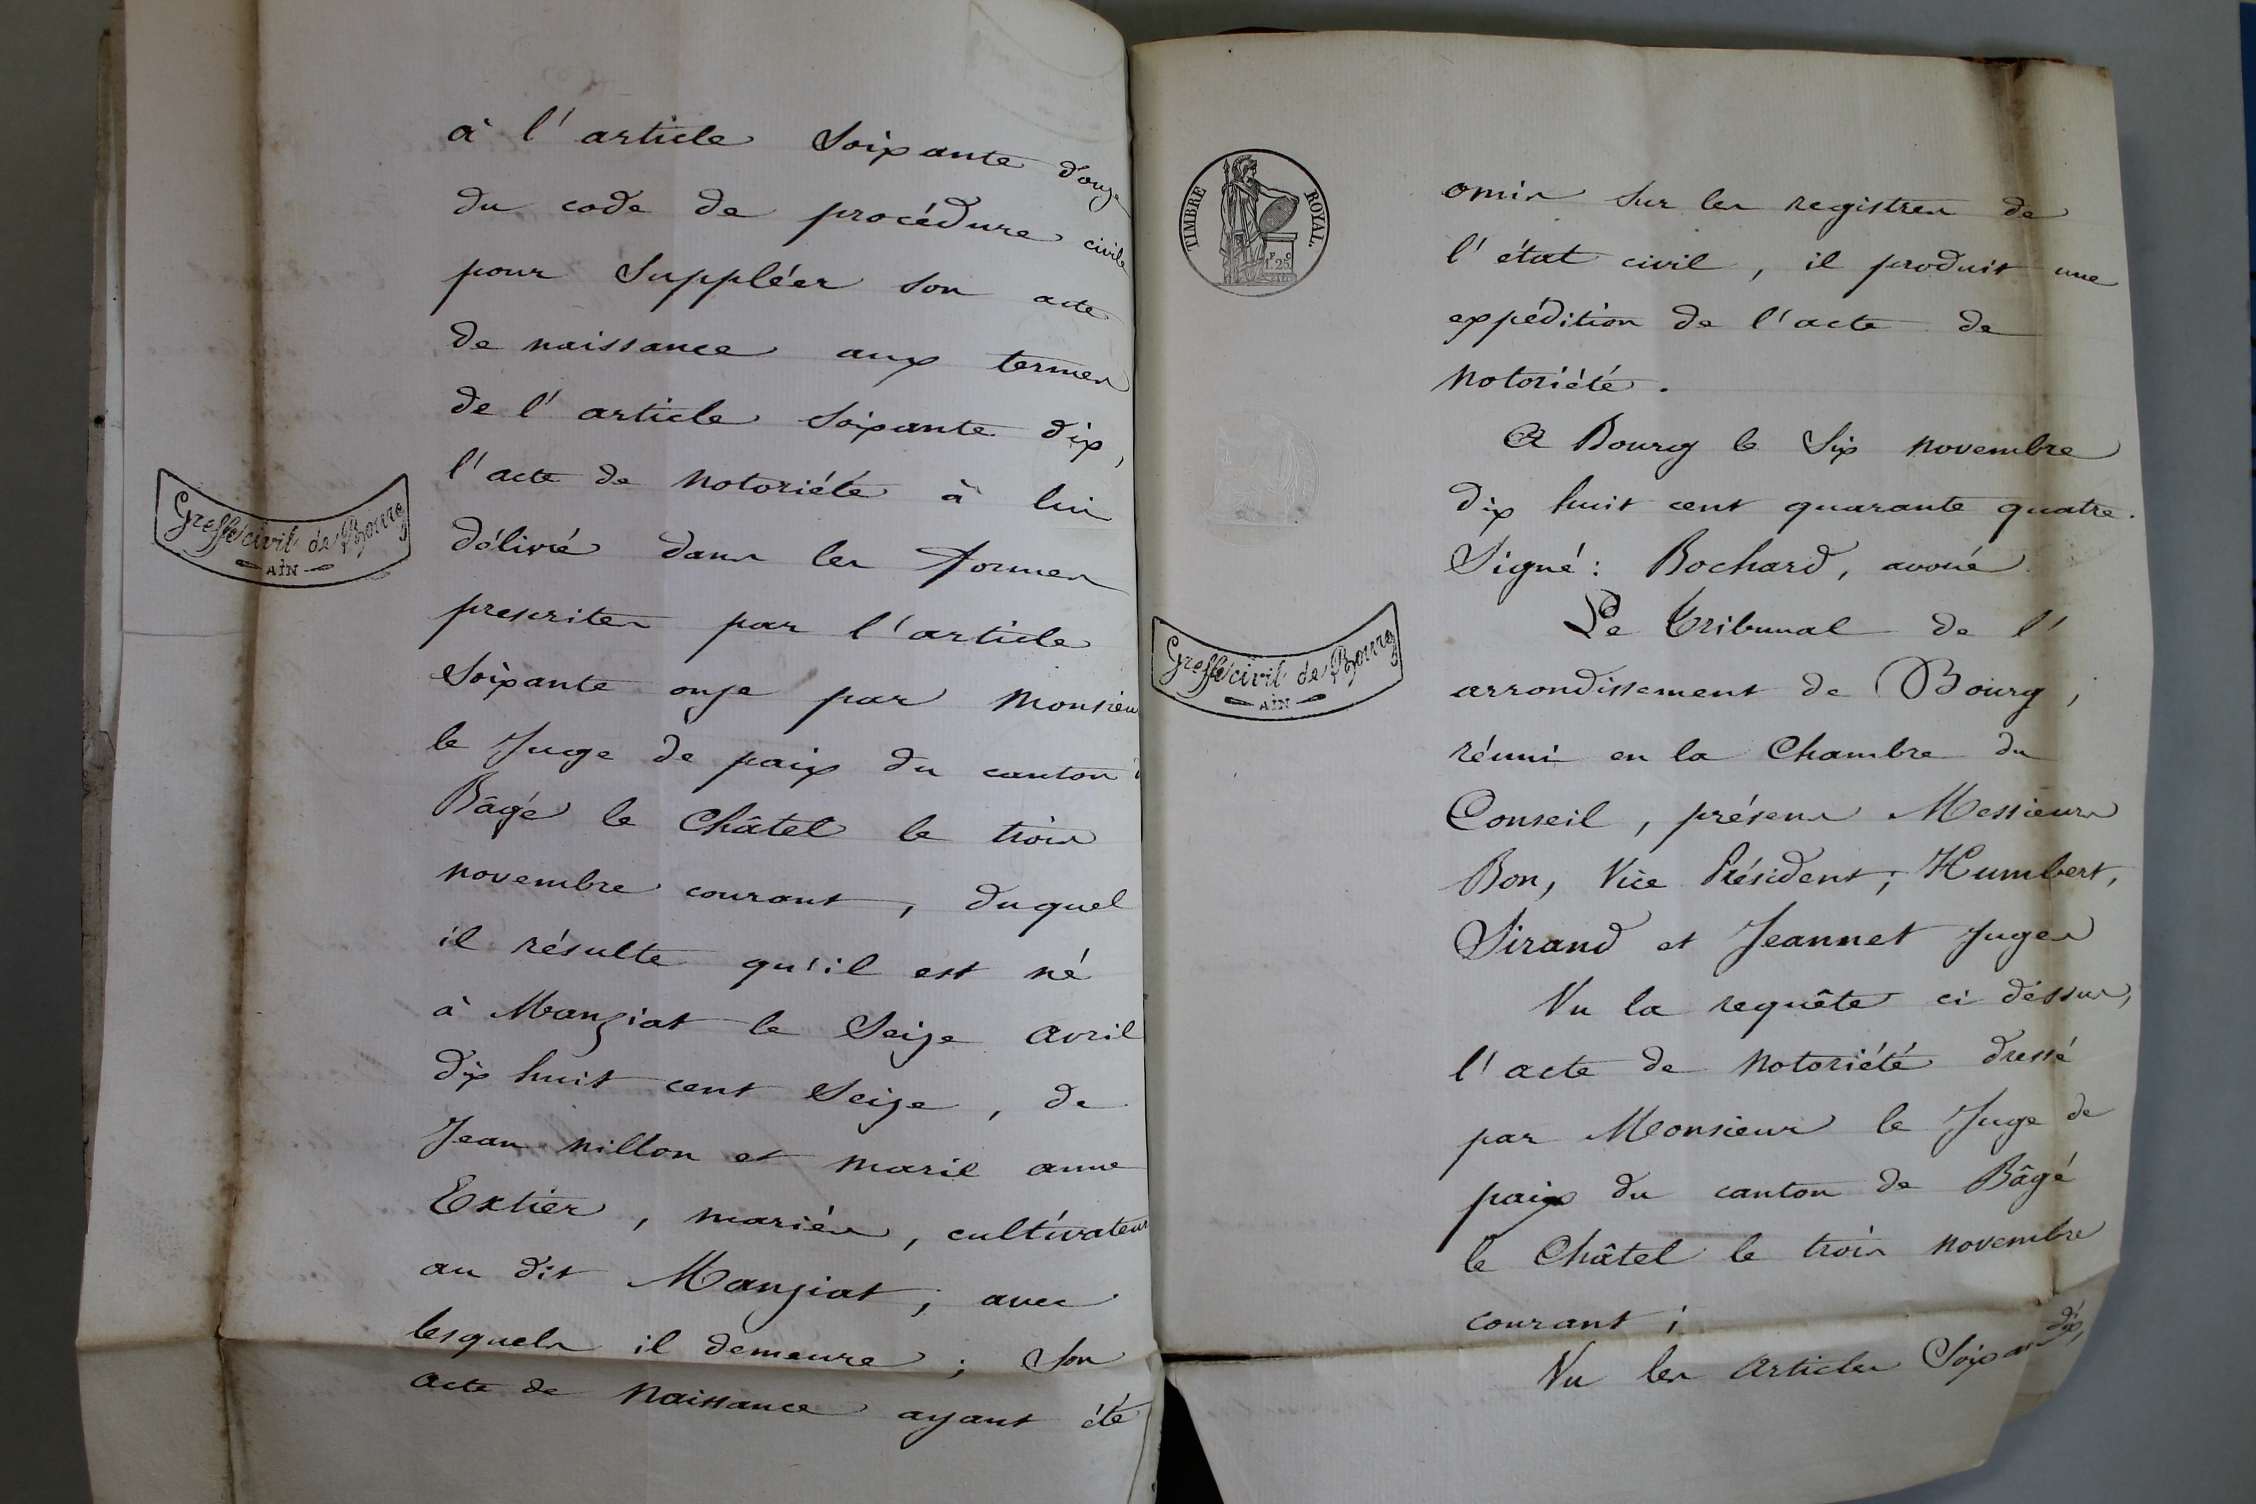 à l'article Soixante douze
du code de procédure civile
pour Suppléer son acte
de naissance aux termes
de l'article soixante dix,
l'acte de notoriété à lui
délivré dans les formes
prescrites par l'article
soixante onze par Monsieur
le Juge de paix du canton
Bâgé le Châtel le trois
novembre courant, duquel
il résulte qu'il est né
à Manziat le Seize avril
dix huit cent Seize, de
Jean nillon et marie anne
Extier, mariés, cultivateurs
au dit Manziat, avec
lesquels il demeure; Son
acte de naissance ayant été
Greffe civil de Bourg
AIN
TIMBRE ROYAL
1F 25C
omis sur les registres de
l'état civil, il produit une
expédition de l'acte de
notoriété.
A Bourg le Six novembre
dix huit cent quarante quatre.
Signé: Bochard, avoué
Le Tribunal de l'
arrondissement de Bourg,
réuni en la Chambre du
Conseil, présens Messieurs
Bon, Vice Président, Humbert,
Sirand et Jeannet Juges
Vu la requête ci déssus,
l'acte de notoriété dressé
par Monsieur le Juge de
paix du canton de Bâgé
le Châtel le trois novembre
courant;
Vu les articles Soixante dix,
Greffe civil de Bourg
AIN